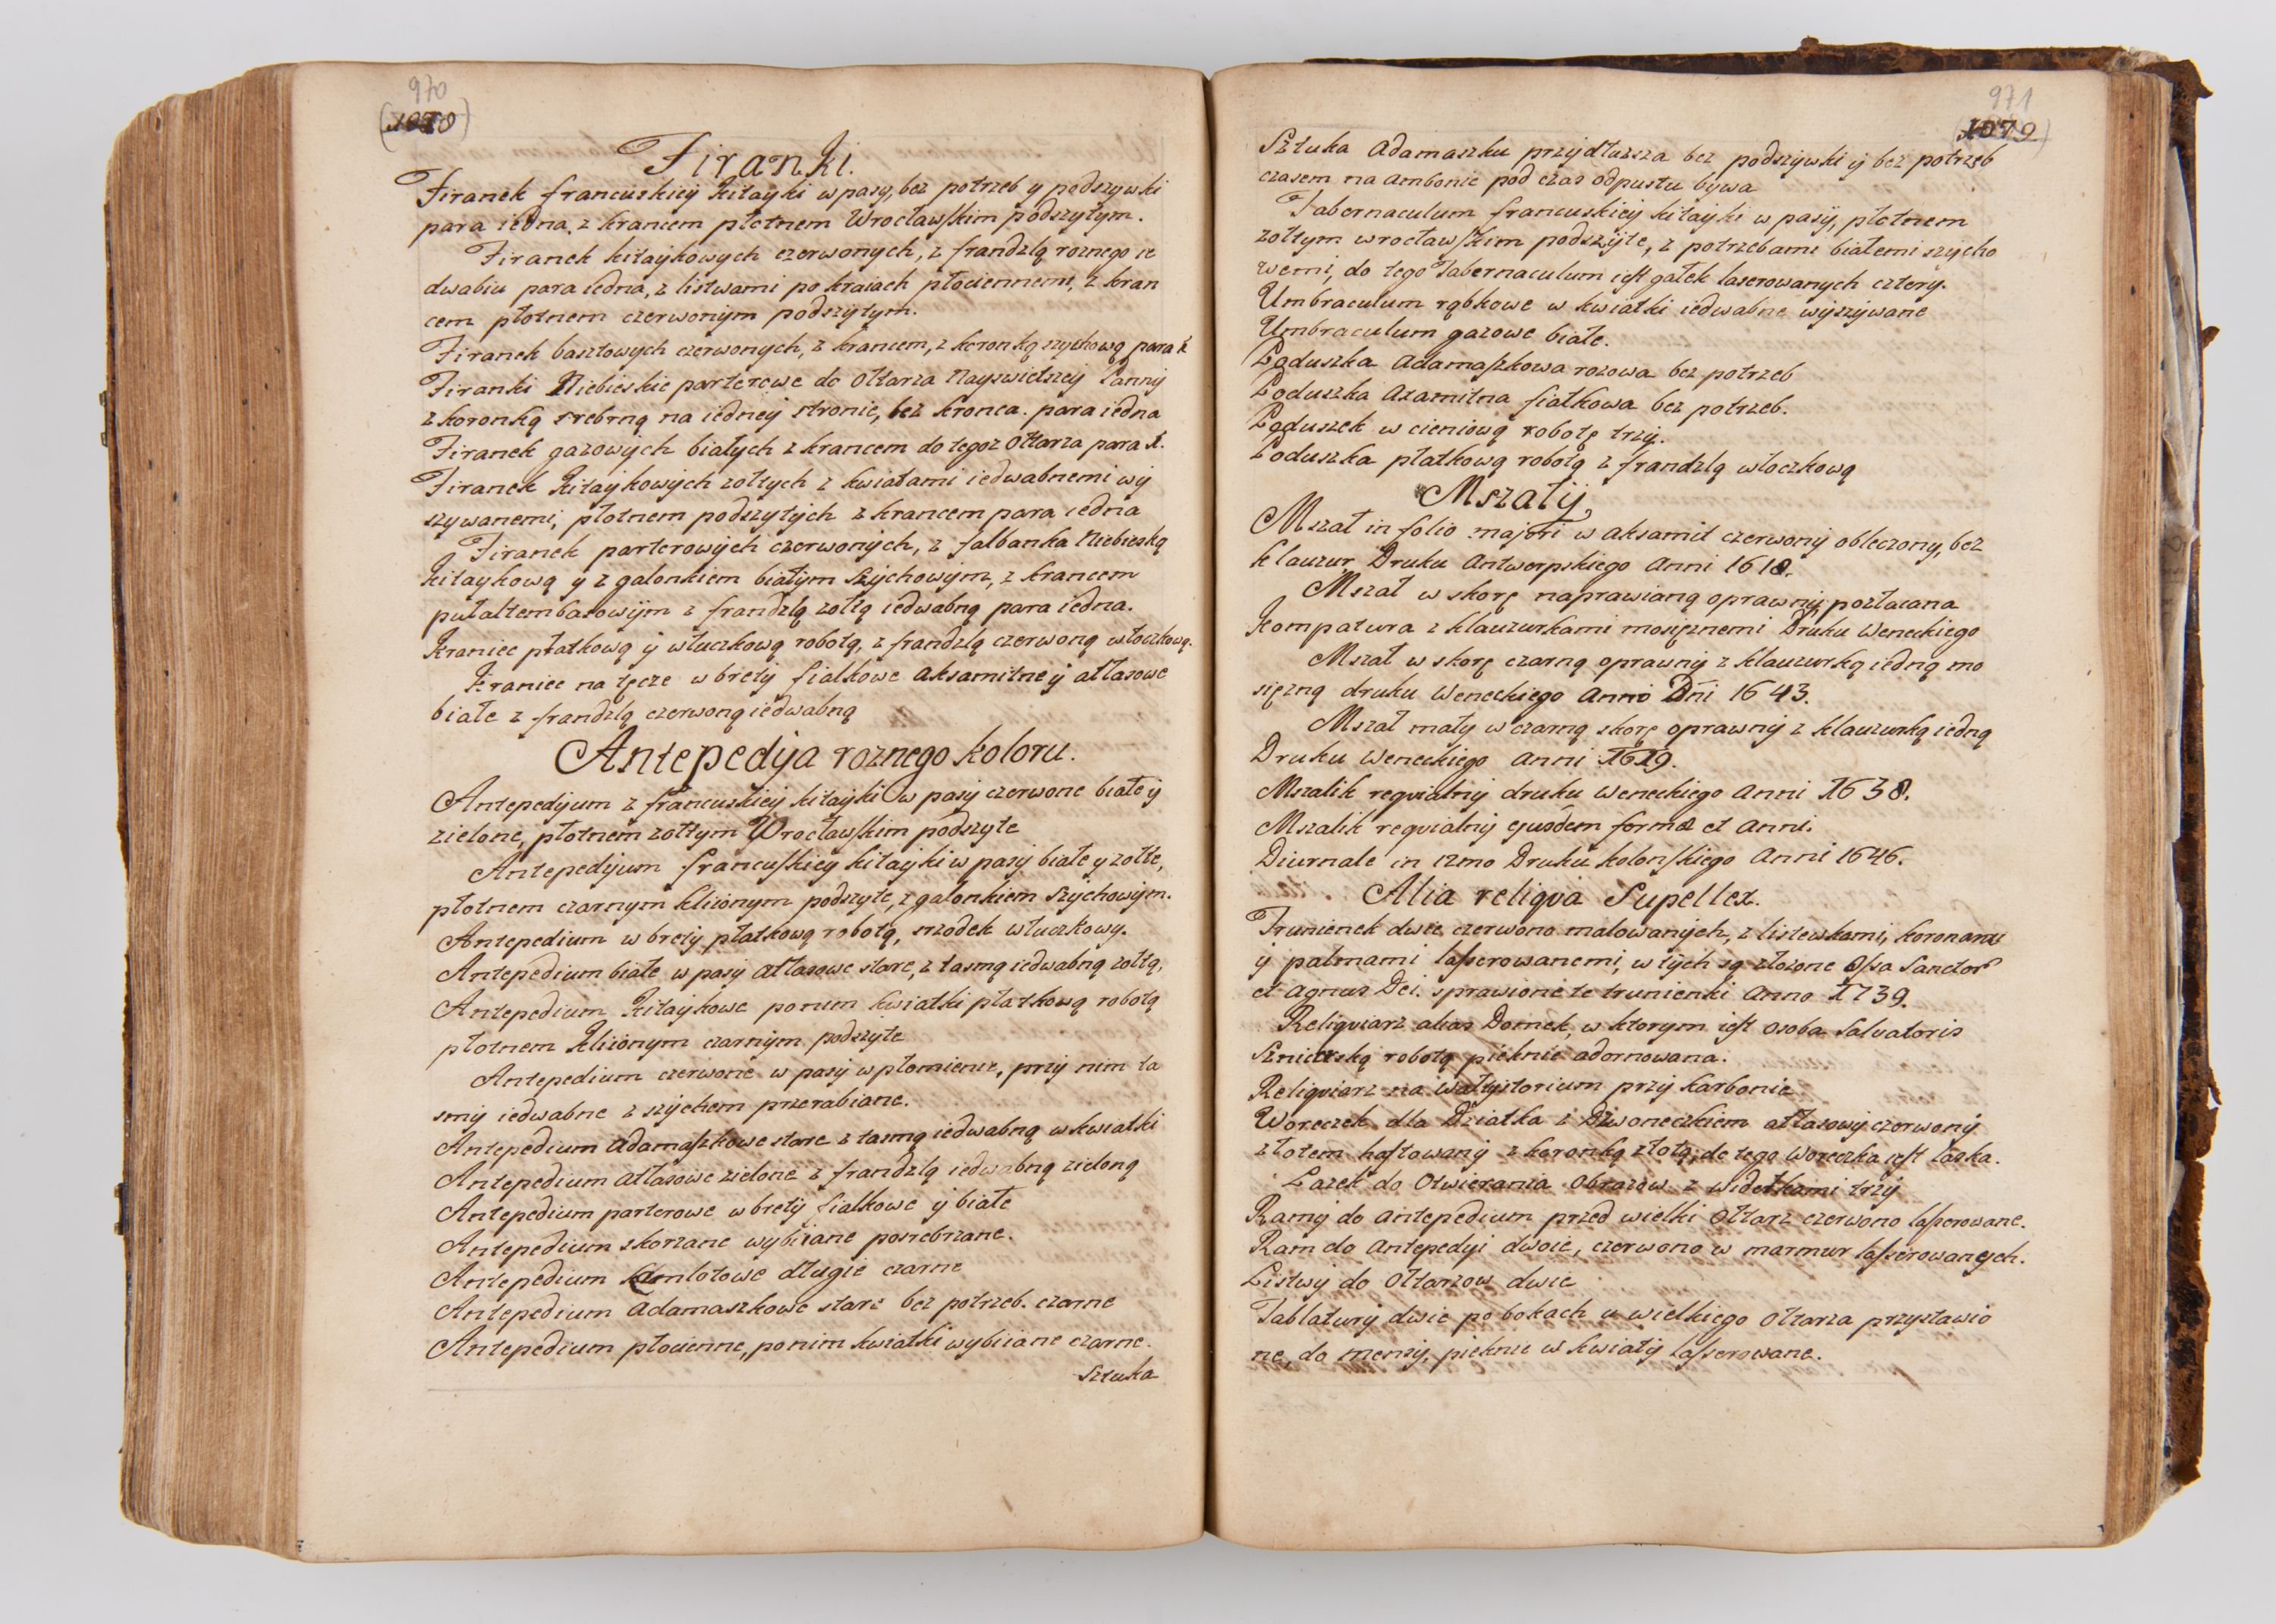 970
(1078)
Firanki.
Firanek francuskiey kitayki w pasy, bez potrzeb y podszywki
para iedna, z krancem płotnem Wrocławskim podszytym.
Firanek kitaykowych czerwonych, z frandzlą roznego ie
dwabiu para iedna, z listwami po kraiach płociennemi, z kran
cem płotnem czerwonym podszytym.
Firanek basztowych czerwonych, z krancem, z koronką szychową para 1
Firanki Niebieskie parterowe do Ołtarza Nayswietszey Panny
z koronką srebrną na iedney stronie, bez kranca. para iedna
Firanek gazowych białych z krancem do tegoz Ołtarza para 1.
Firanek kitaykowych zołtych z kwiatami iedwabnemi wy
szywanemi, płotnem podszytych z krancem para iedna
Firanek parterowych czerwonych, z falbanka Niebieską
kitaykową y z galonkiem białym szychowym, z krancem
pułaltembasowym z frandzlą zołtą iedwabną para iedna.
Kraniec płatkową y włuczkową robotą, z frandzlą czerwoną włoczkową.
Kraniec na tęcze w brety fiałkowe aksamitne y atłasowe
białe z frandzlą czerwoną iedwabną
Antepedya roznego koloru.
Antepedyum z francuskiey kitayki w pasy czerwone białe y
zielone, płotnem zołtym Wrocławskim podszyte
Antepedyum francuskiey kitayki w pasy białe y zołte,
płotnem czarnym kliionym podszyte, z galonkiem szychowym.
Antepedium w brety płatkową robotą, srzodek włuczkowy.
Antepedium białe w pasy atłasowe stare, z tasmą iedwabną zołtą,
Antepedium kitaykowe po nim kwiatki płatkową robotą
płotnem kliionym czarnym podszyte
Antepedium czerwone w pasy w płomienie, przy nim ta
smy iedwabne z szychem przerabiane.
Antepedium adamaszkowe stare z tasmą iedwabną w kwiatki
Antepedium atłasowe zielone z frandzlą iedwabną zieloną
Antepedium parterowe w brety fialkowe y białe
Antepedium skorzane wybiiane posrebrzane.
Antepedium kamlotowe długie czarne
Antepedium adamaszkowe stare bez potrzeb. czarne
Antepedium płocienne, po nim kwiatki wybiiane czarne.
Sztuka
971
(1079)
Sztuka Adamaszku przydłuzsza bez podszywki y bez potrzeb
czasem na ambonie pod czas odpustu bywa
Tabernaculum francuskiey kitayki w pasy, płotnem
zołtym wrocławskim podszyte, z potrzebami białemi szycho
wemi, do tego Tabernaculum iest gałek laserowanych cztery.
Umbraculum rąbkowe w kwiatki iedwabne wyszywane
Umbraculum gazowe białe.
Poduszka adamaszkowa rozowa bez potrzeb
Poduszka axamitna fiałkowa bez potrzeb.
Poduszek w cieniową robotę trzy.
Poduszka płatkową robotą z frandzlą włoczkową
Mszały
Mszał in folio majori w aksamit czerwony obleczony, bez
klauzur Druku Antwerpskiego Anni 1618.
Mszał w skorę naprawianą oprawny, pozłacana
Kompatura z klauzurkami mosięznemi Druku Weneckiego
Mszał w skorę czarną oprawny z klauzurką iedną mo
sięzną druku Weneckiego Anno Dni 1643.
Mszał mały w czarną skorę oprawny z klauzurką iedną
Druku Weneckiego Anni 1619.
Mszalik reqvialny druku Weneckiego Anni 1638.
Mszalik reqvialny ejusdem formæ et Anni.
Diurnale in 12mo Druku kolonskiego Anni 1646.
Alia reliqva Supellex.
Trunienek dwie czerwono malowanych, z listewkami, koronami
y palmami lasserowanemi, w tych są złozone Ossa Sanctor
et Agnus Dei. sprawione te trunienki Anno 1739.
Reliqviarz alias Domek, w ktorym iest osoba Salvatoris
Sznicerską robotą pieknie adornowana.
Reliqviarz na Wotystorium przy karbonie
Woreczek dla Dziatka z Dzwoneczkiem atłasowy czerwony
złotem haftowany z koronką złotą, do tego Woreczka iest laska.
Lasek do Otwierania Obrazow z widełkami trzy
Ramy do antepedium przed wielki Ołtarz czerwono lasserowane.
Ram do Antepedyi dwoie, czerwono w marmur lasserowanych.
Listwy do Ołtarzow dwie
Tablatury dwie po bokach u wielkiego Ołtarza przystawio
ne, do mensy, pieknie w kwiaty lasserowane.